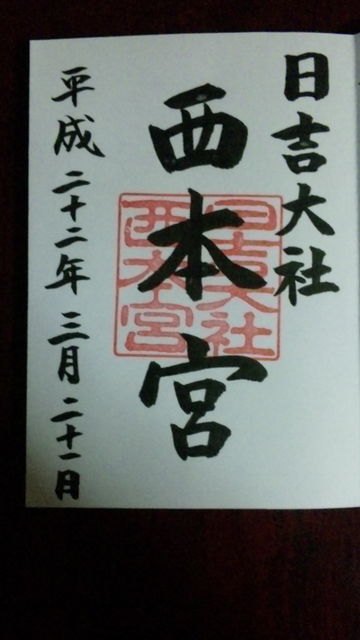 日吉大社
西本宮
平成二十二年三月二十一日
日吉大社
西本宮